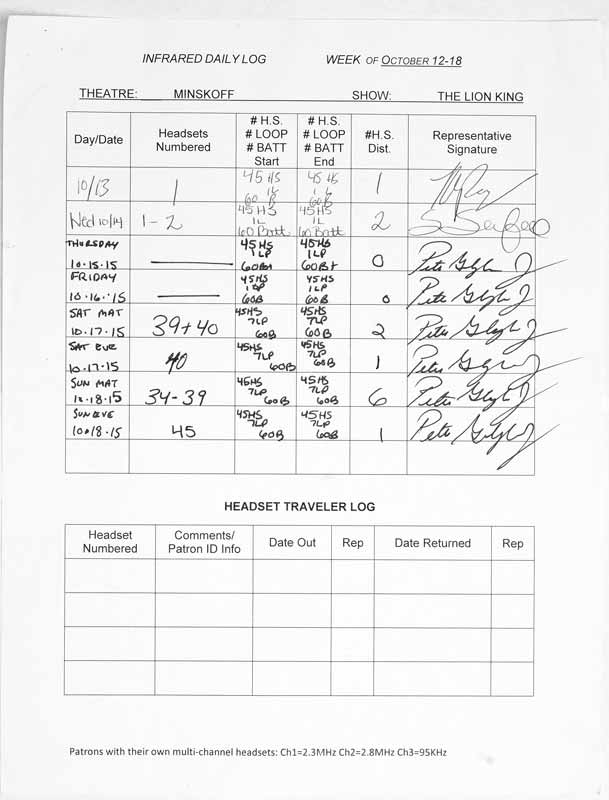 INFRARED DAILY LOG WEEK OF OCTOBER 12-18
THEATRE: MINSKOFF SHOW: THE LION KING
Day/Date Headsets Numbered # H.S. # LOOP # BATT Start # H.S. # LOOP # BATT End #H.S. Dist. Representative Signature
10/13 1 45 HS 60 B 45 HS 60B 1
Wed 10/14 1-2 45 HS 1L 60 Batt 45HS 1L 60 Batt 2
THURSDAY 10.15.15 45HS 1LP 60Bt 45HS 1LP 60Bt 0
FRIDAY 10.16.'15 45HS 1LP 60B 45HS 1LP 60B 0
SAT MAT 10.17.15 39+40 45HS 7LP 60B 45HS 7LP 60B 2
SAT EVE 10.17.15 40 45HS 7LP 60B 45HS 7LP 60B 1
SUN MAT 10.18.15 34-39 45HS 7LP 60B 45HS 7LP 60B 6
SUN EVE 10.18.15 45 45HS 7LP 60B 45HS 7LP 60B 1
HEADSET TRAVELER LOG
Headset Numbered Comments/ Patron ID Info Date Out Rep Date Returned Rep
Patrons with their own multi-channel headsets: Ch1=2.3MHz Ch2=2.8MHz Ch3=95KHz